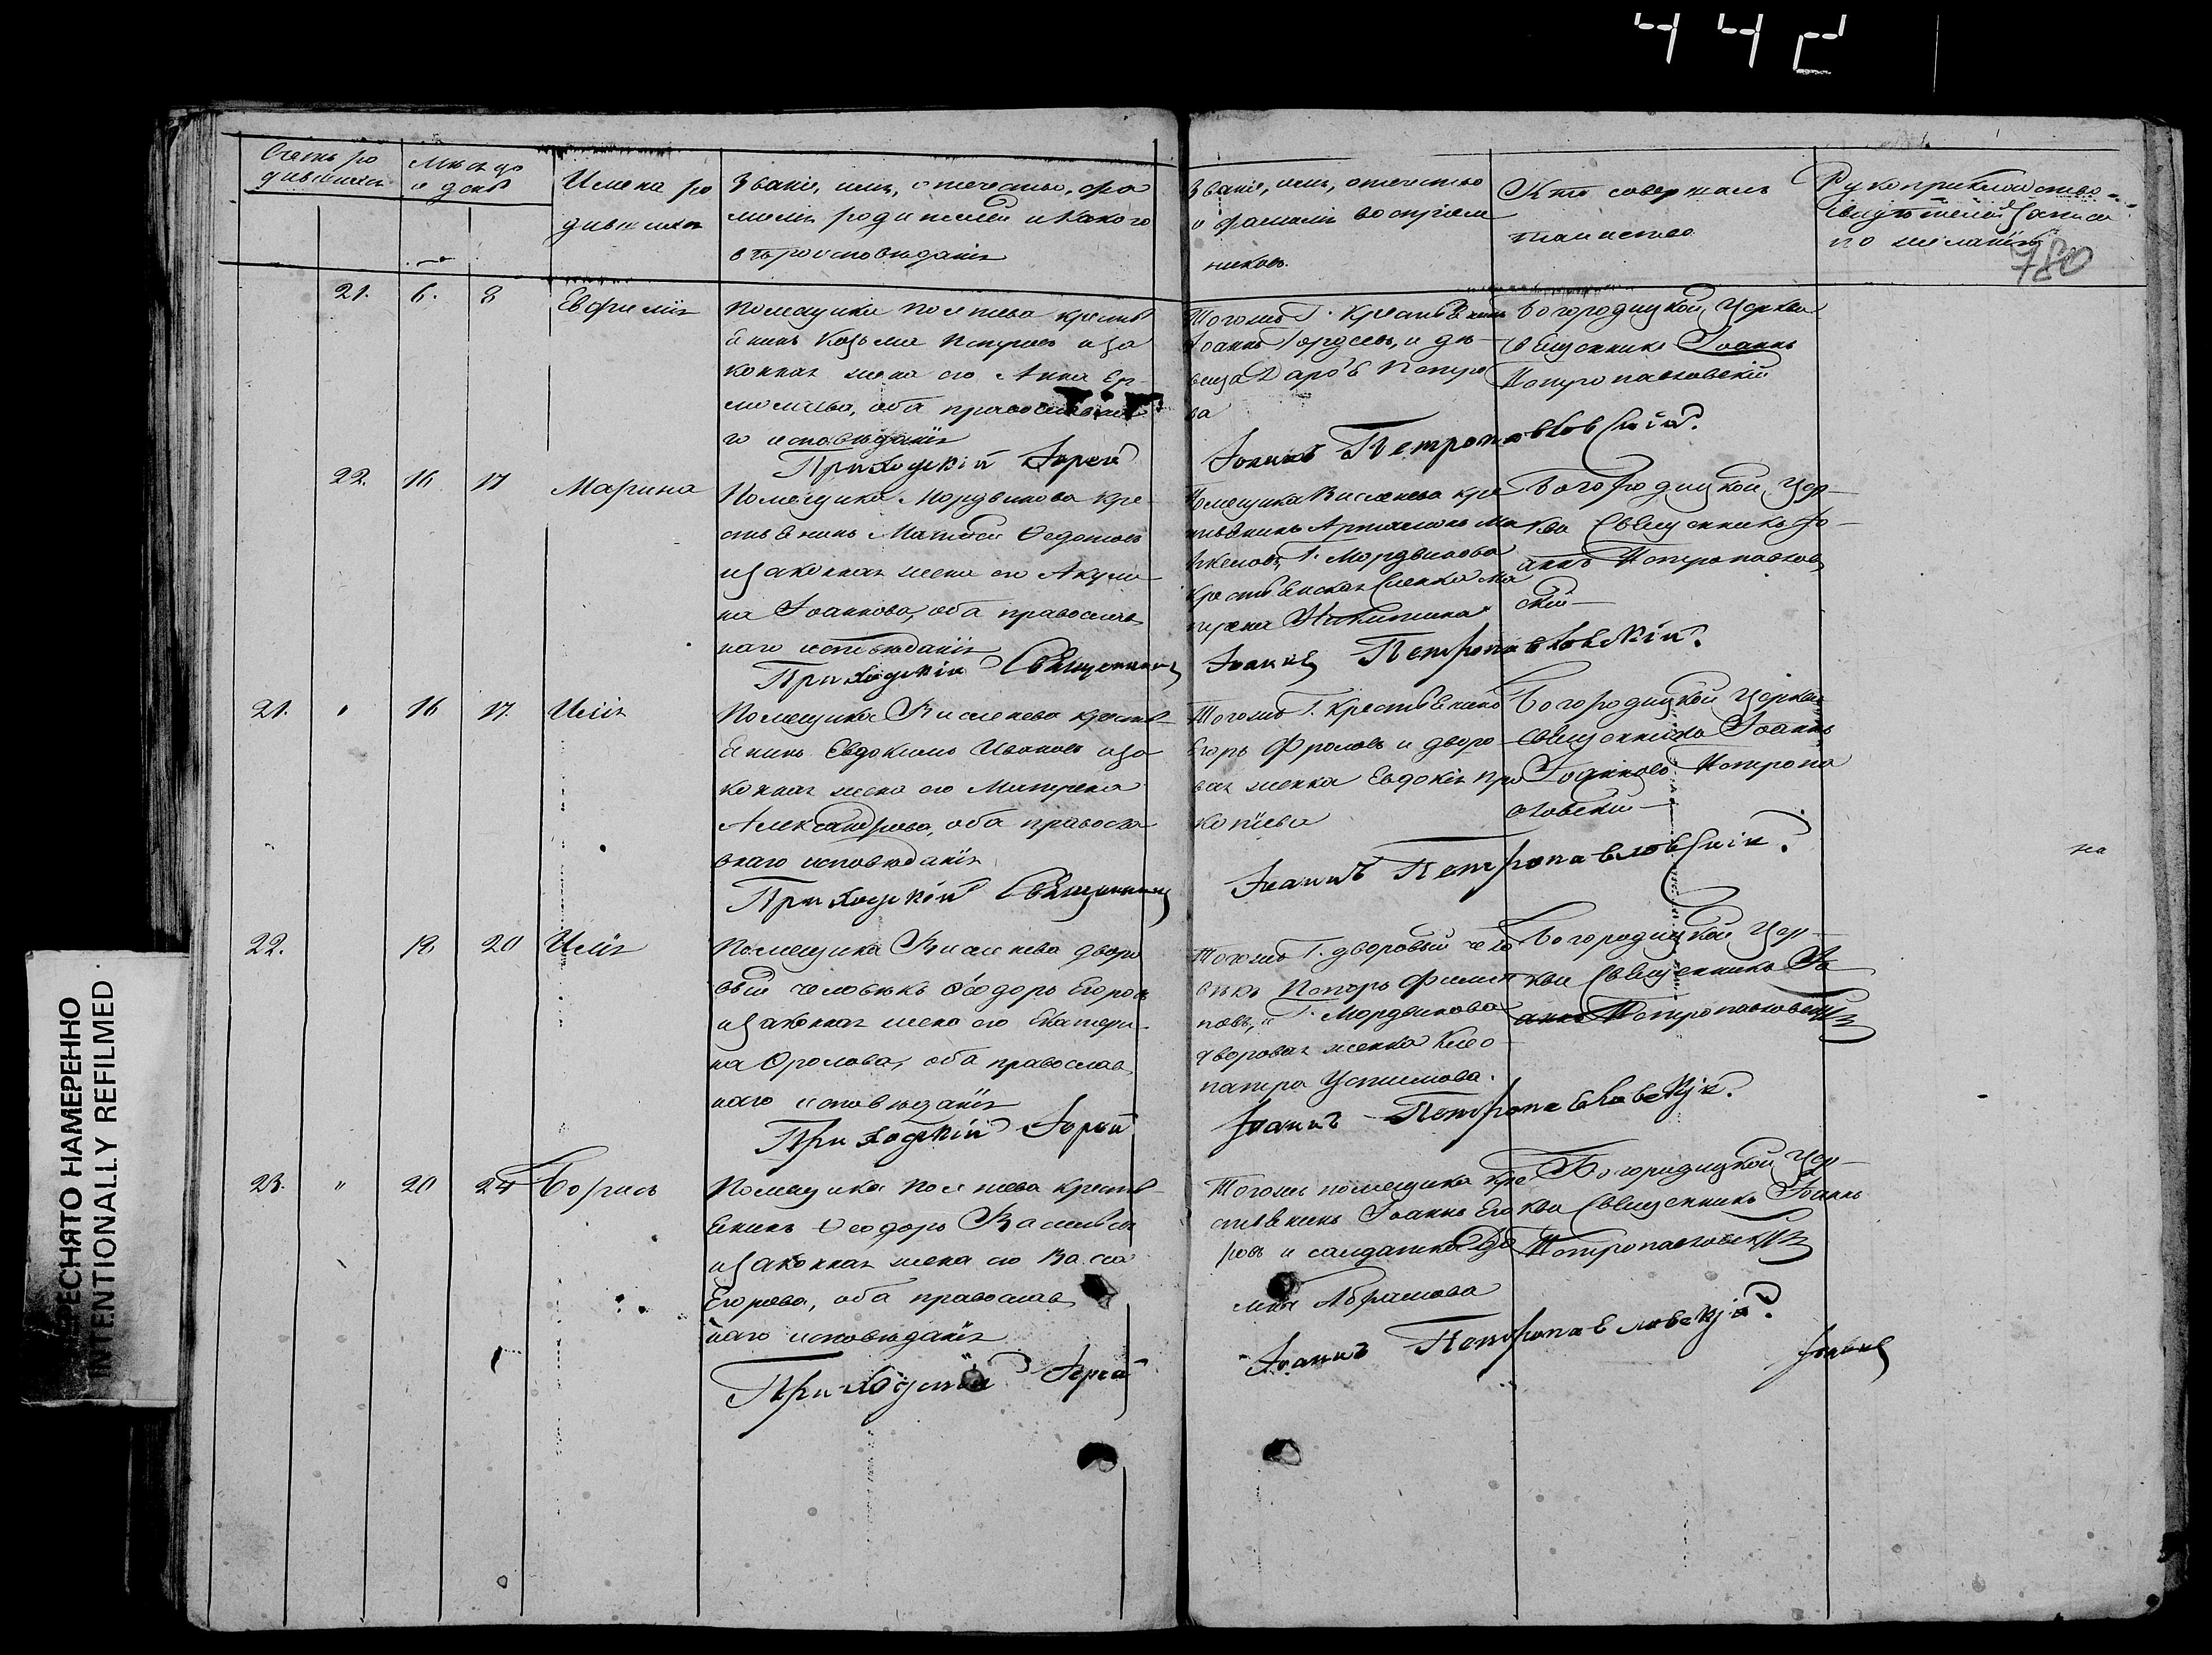 442
780
Счетъ ро
дившихся
Мѣсяцъ
и день
Имена ро
дившихся
Званіе, имя, отечество, фа
милія родителей и какого
вѣроисповѣданія
Званіе, имя, отечество
и фамилія воспріем
никовъ.
Кто совершалъ
таинство
Рукоприкладство
свидѣтелей записи
по желанію
21. 6. 8 Евфимія
Помещика крестья
енинъ Козьма Петровъ и за
конная жена его Анна Ер-
молаева, оба православна
го исповѣданія
Приходскій Іерей
Тогожъ Г. крестьенинъ
Іоаннъ Гордеевъ, и дѣ
вица Дарья Петро
ва
Богородицкой Церкви
Священникъ Іоаннъ
Петропавловскій
Іоаннъ Петропавловскій.
22. 16 17 Марина
Помещика Мордвинова кре-
стьенинъ Матвей Федотовъ
и законная жена его Акули-
на Іоаннова, оба православ
наго исповѣданія
Приходскій Священникъ
Помещика Висленева кре
стьенинъ Артамонъ
Г. Мордвинова
крестьенская женка Ма
трена Никитина
Богородицкой Цер-
кви Священникъ Іо-
аннъ Петропавлов
скій
Іоаннъ Петропавловскій.
21. " 16 17. Илія
Помещика Висленева крестья-
енинъ Евдокимъ Ивановъ и за
конная жена его Матрена
Александрова, оба правосла
внаго исповѣданія
Приходскій Священникъ
Тогожъ Г. крестьенинъ
Егоръ Фроловъ и дворо-
вая женка Евдокія Про
копіева
Богородицкой Церкви
Священникъ Іоаннъ
Петропа
вловскій
Іоаннъ Петропавловскій.
на
22. 18 20 Илія
Помещика Висленева дворо
вый человѣкъ Ѳеодоръ Егоровъ
и законная жена его Екатери-
на Фролова, оба православ
наго исповѣданія
Приходскій Іерей
Тогожъ Г. дворовый чело
вѣкъ Петръ Филип
повъ, и Г. Мордвинова
дворовая женка Клео-
патра Устинова.
Богородицкой Цер-
кви Священникъ Іо
аннъ Петропавловскій
Іоаннъ Петропавловскій.
23. " 20 24 Борисъ
Помещика крестья-
енинъ Ѳеодоръ Васильевъ
и законная жена его Васса
Егорова, оба православ
наго исповѣданія
Приходскій Іерей
Тогожъ помещика кре
стьенинъ Іоаннъ Его
ровъ и салдатка До
мна Абрамова
Богородицкой Цер-
кви Священникъ Іоаннъ
Петропавловскій
Іоаннъ Петропавловскій.
Іоаннъ
ПЕРЕСНЯТО НАМЕРЕННО
INTENTIONALLY REFILMED